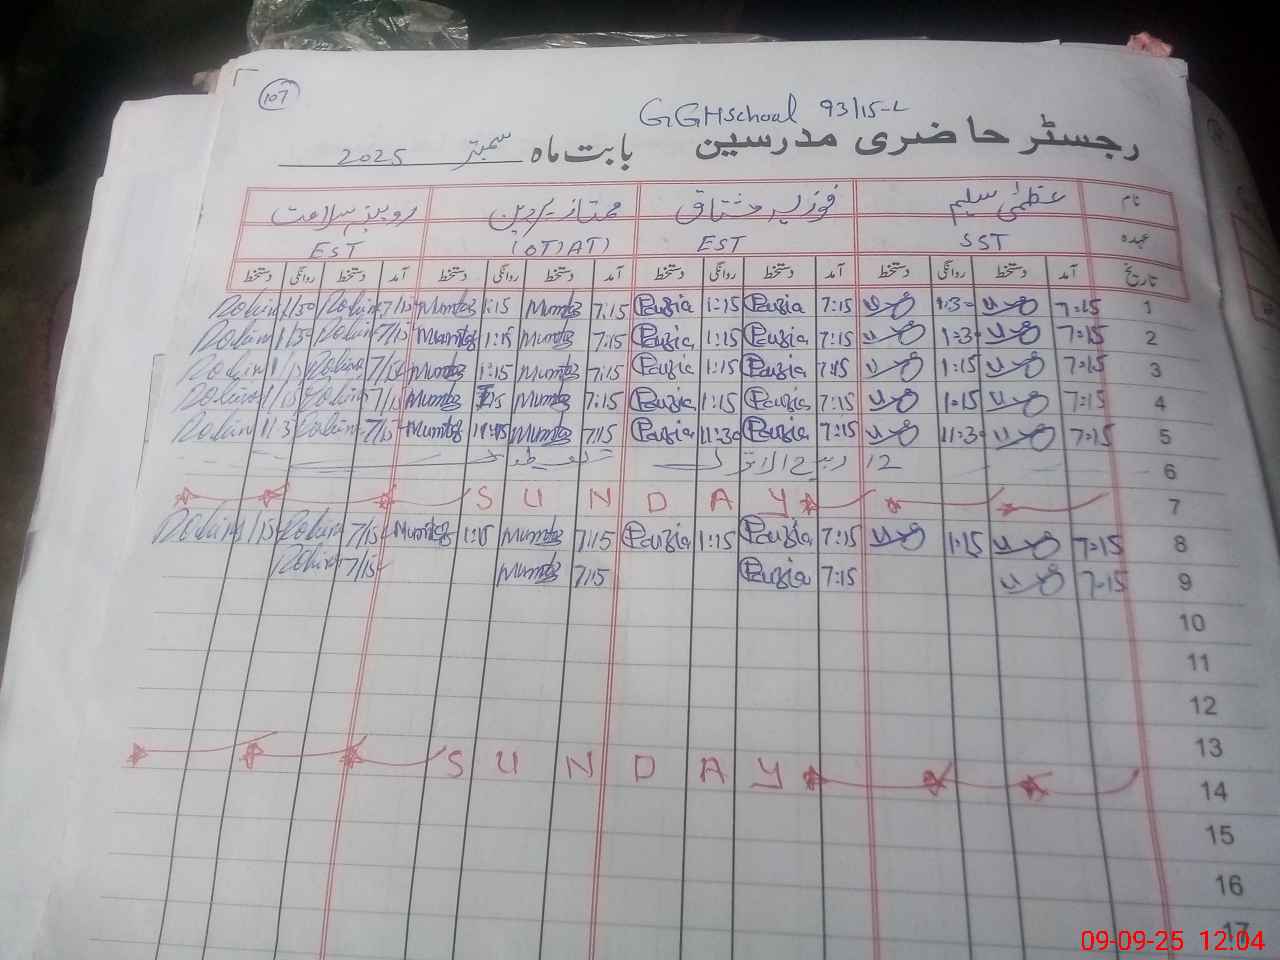 107
GGHSchool 93/15-L
رجسٹر حاضری مدرسین بابت ماہ ستمبر 2025
نام عظمیٰ سلیم فوزیہ مشتاق ممتاز روبینہ سلامت
عہدہ SST EST (OT)AT) EST
تاریخ آمد دستخط روانگی دستخط آمد دستخط روانگی دستخط آمد دستخط روانگی دستخط آمد دستخط روانگی دستخط
1 7:15 1:30 7:15 Fauzia 1:15 Fauzia 7:15 Mumtaz 1:15 Mumtaz 7/15 Robina 1/30 Robina
2 7:15 1:30 7:15 Fauzia 1:15 Fauzia 7:15 Mumtaz 1:15 Mumtaz 7/15 Robina 1/30 Robina
3 7:15 1:15 7:15 Fauzia 1:15 Fauzia 7:15 Mumtaz 1:15 Mumtaz 7/15 Robina 1/15 Robina
4 7:15 1:15 7:15 Fauzia 1:15 Fauzia 7:15 Mumtaz 1:15 Mumtaz 7/15 Robina 1/15 Robina
5 7:15 11:30 7:15 Fauzia 11:30 Fauzia 7:15 Mumtaz Mumtaz 7/15 Robina 11/30 Robina
6 12 ربیع الاول تعطیل
7 SUNDAY
8 7:15 1:15 7:15 Fauzia 1:15 Fauzia 7:15 Mumtaz 1:15 Mumtaz 7/15 Robina 1/15 Robina
9 7:15 7:15 Fauzia 7:15 Mumtaz 7/15 Robina
10
11
12
13
14 SUNDAY
15
16
17
09-09-25 12:04